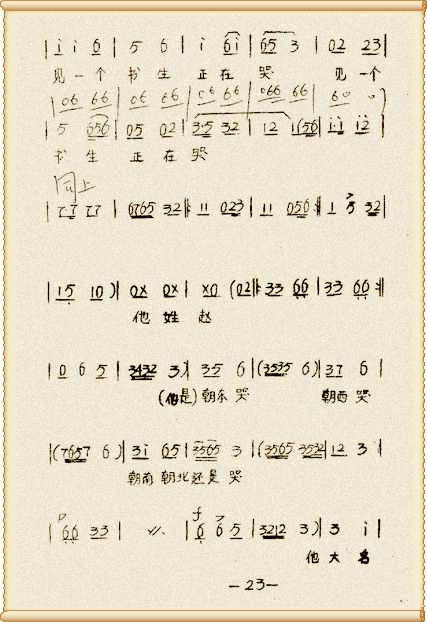 | i i 6 | 5 6 | i 6i | 65 3 | 02 23 |
见一个 书生 正在 哭 见一个
| 06 66 | 06 66 | 06 66 | 066 66 | 60 0 )
| 5 656 | 05 02 | 3·5 32 | 12 i(56 | i·i i2 |
书生 正在哭
同上
| 77 77 | 6765 32 ‖: 11 023 | 11 056 :‖ 1 5 32 |
| 15 10 ) | 0x 0x | x0 (02 ‖: 33 66 | 33 66 :‖
他 姓 赵
| 0 6 5 | 3432 3 ) | 35 6 | (3535 6 ) | 37 6 |
(他是) 朝东 哭 朝西 哭
| (7657 6 ) | 3i 65 | 3565 3 | (3565 3532 | 12 3 |
朝南 朝北还是 哭
p f >
| 66 33 | 〃 | 6 6 5 | 3212 3 ) | 3 i |
他大名
—23—